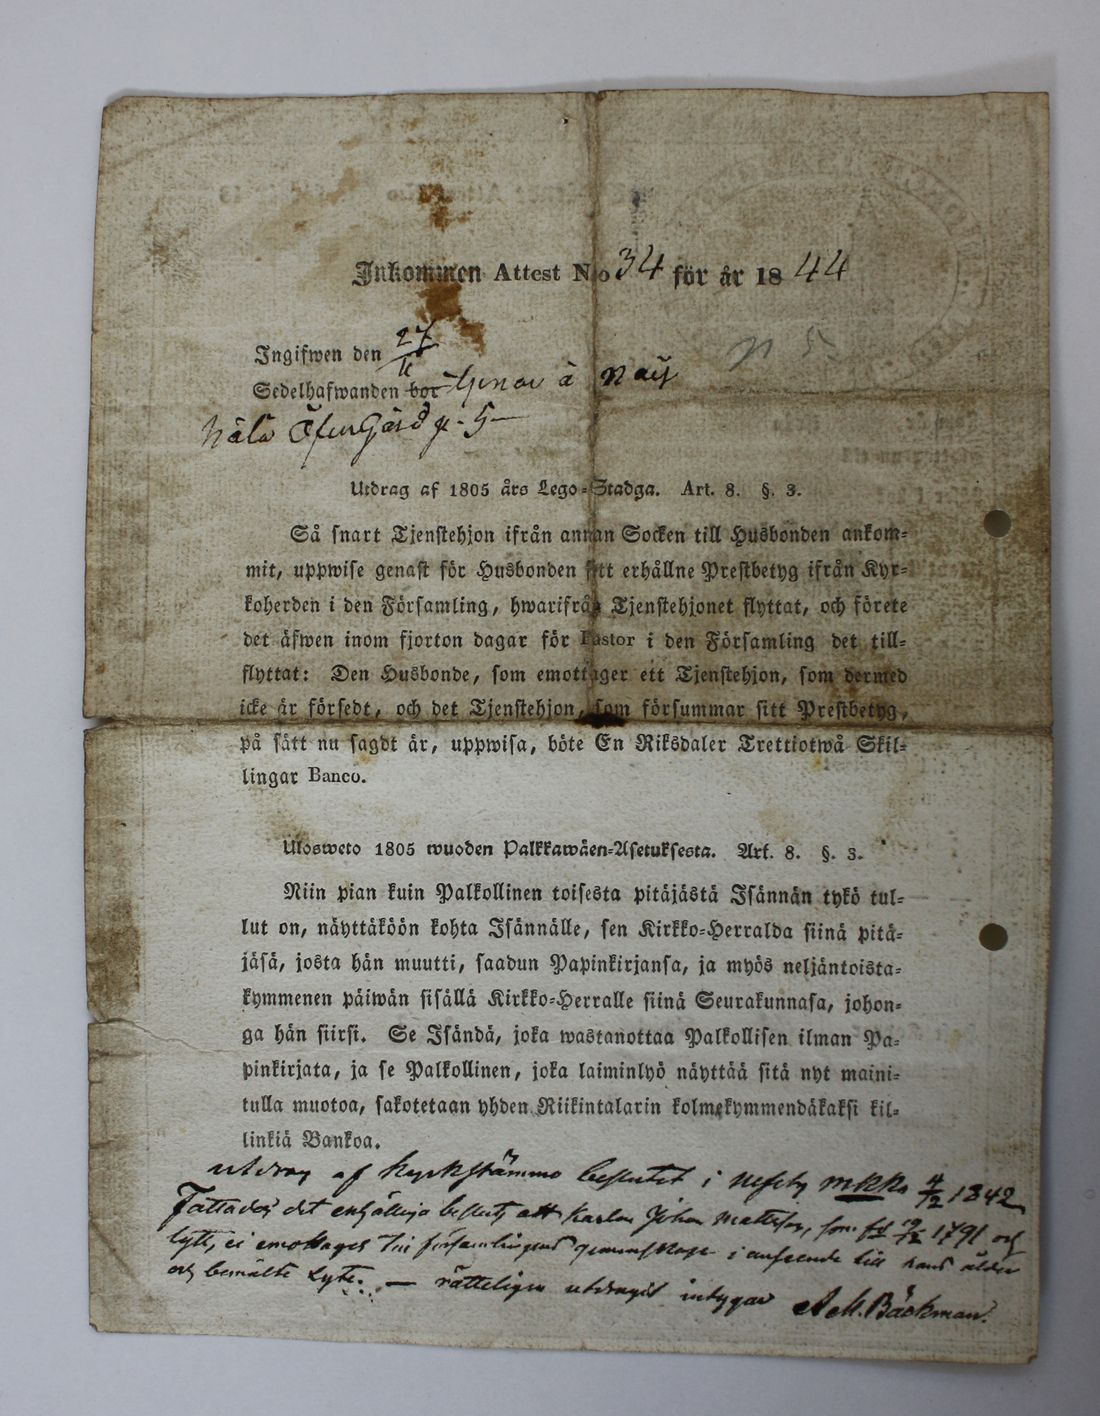 Inkommen Attest No 34 för år 1844
Ingifwen den 27/11
Sedelhafwanden bor tjenar å
Öfwergård 5
n 5
Utdrag af 1805 års Lego-Stadga. Art. 8. §. 3.
Så snart Tjenstehjon ifrån annan Socken till Husbonden ankom-
mit, uppwise genast för Husbonden sitt erhållne Prestbetyg ifrån Kyr-
koherden i den Församling, hwarifrån Tjenstehjonet flyttat, och förete
det äfwen inom fjorton dagar för Pastor i den Församling det till-
flyttat: Den Husbonde, som emottager ett Tjenstehjon, som dermed
icke är försedt, och det Tjenstehjon, som försummar sitt Prestbetyg,
på sätt nu sagdt är, uppwisa, böte En Riksdaler Trettiotwå Skil-
lingar Banco.
Ulosweto 1805 wuoden Palkkawäen-Asetuksesta. Art. 8. §. 3.
Niin pian kuin Palkollinen toisesta pitäjästä Isännän tykö tul-
lut on, näyttäköön kohta Isännälle, sen Kirkko-Herralda siinä pitä-
jäsä, josta hän muutti, saadun Papinkirjansa, ja myös neljäntoista-
kymmenen päiwän sisällä Kirkko-Herralle siinä Seurakunnasa, johon-
ga hän siirsi. Se Isändä, joka wastanottaa Palkollisen ilman Pa-
pinkirjata, ja se Palkollinen, joka laiminlyö näyttää sitä nyt maini-
tulla muotoa, sakotetaan yhden Riikintalarin kolmekymmendäkaksi kil-
linkiä Bankoa.
utdrag af kyrkstämmo beslutet i 4/2 1842
Fattades det enhälliga beslut, att karlen Johan Mattsson, som född 1791 och
lyte, ei emottages till församlingens gemenskap i anseende till dess ålder
och bemälte Lyte. — rätteligen utdraget intygar A M. Bäckman.